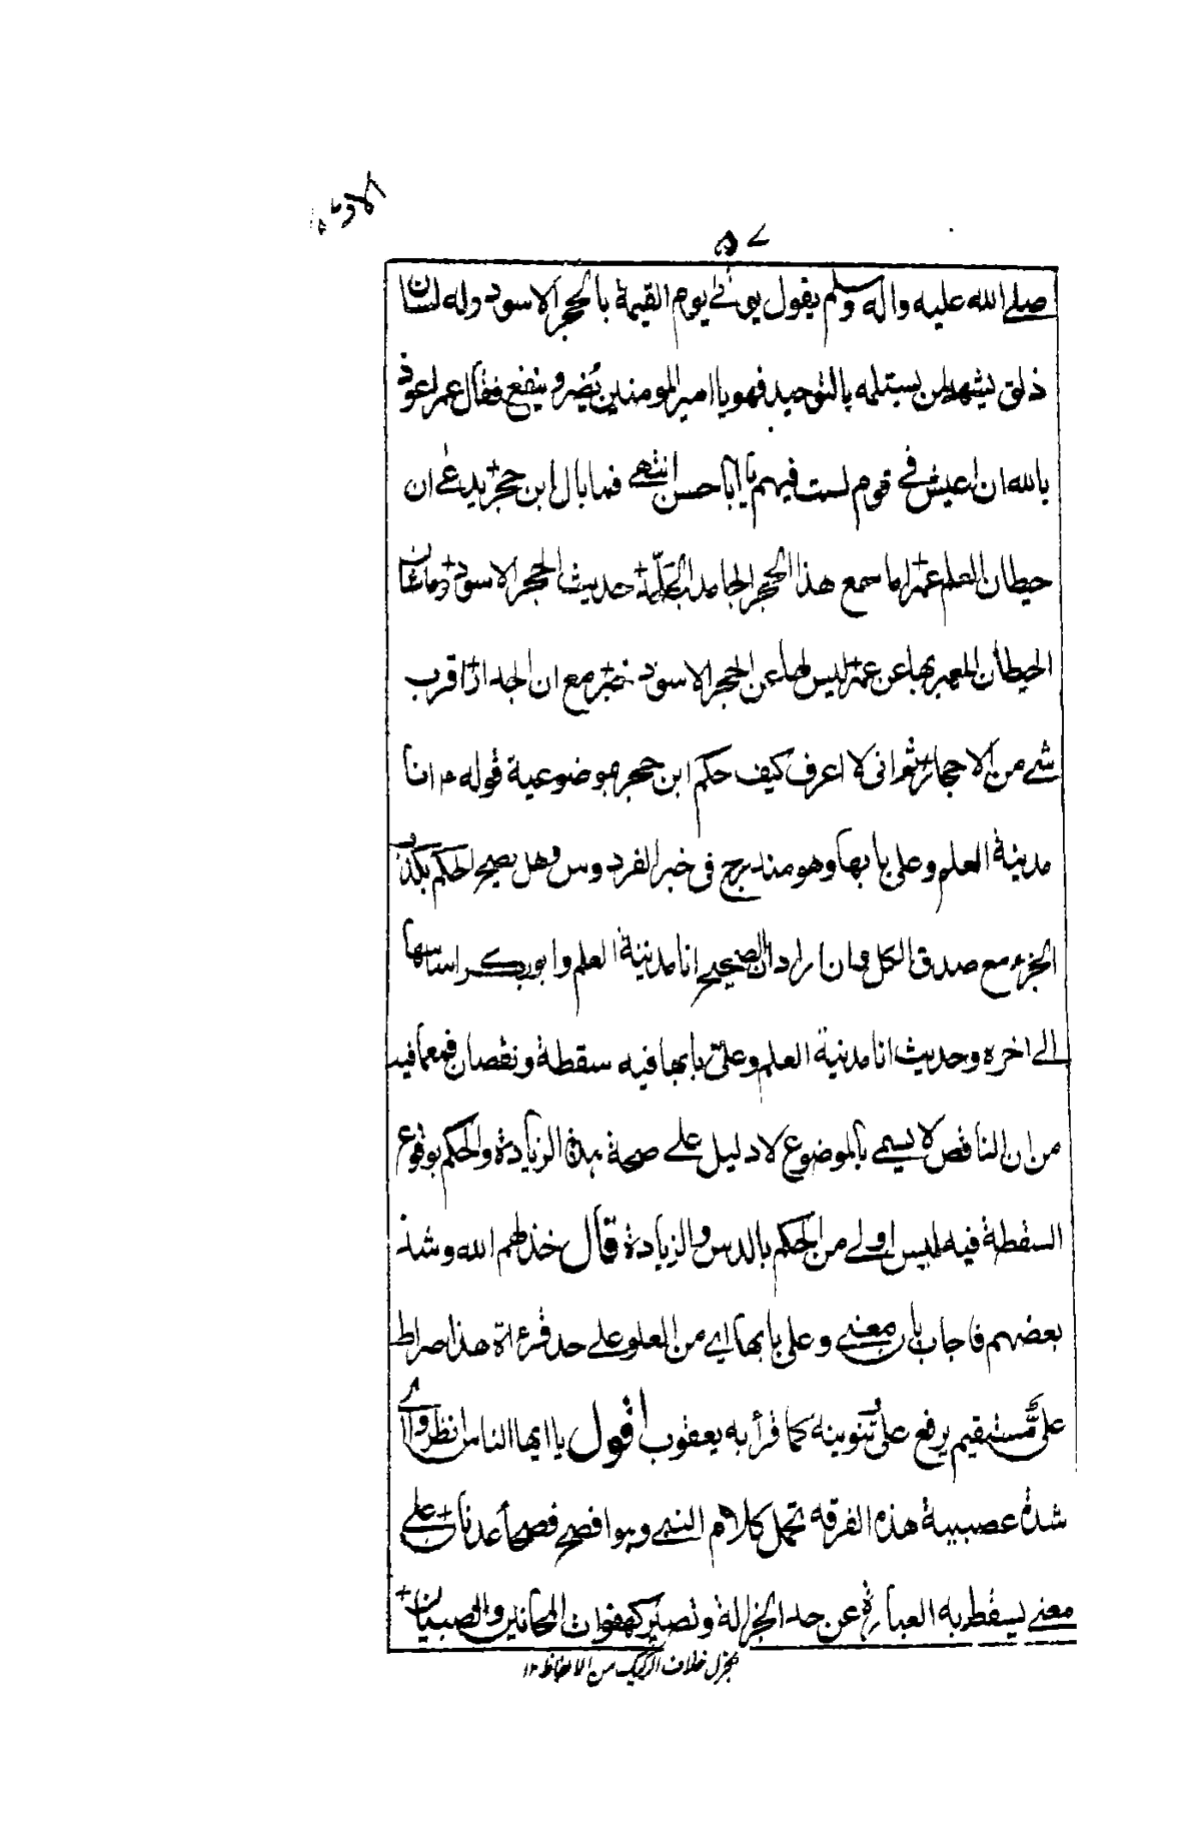 ٥٧
صلے الله عليه واله وسلم يقول يوتى يوم القيمة بالحجر الاسود وله لسان
ذلق يشهد لمن يستلمه بالتوحيد فهو يا امير المومنين يضر و ينفع فقال عمر اعوذ
بالله ان اعيش فے قوم لست فيهم يا ابا حسن انتهے فما بال ابن حجر يدعے ان
حيطان العلم عمر اما سمع هذا الحجر الجامد حديث الحجر الاسود
الحيطان المعبر بها عن عمر ليس لها عن الحجر الاسود خبر مع ان الجدار اقرب
شے من الاحجار ثم انى لا اعرف كيف حكم ابن حجر بموضوعية قوله ۴ انا
مدينة العلم وعلى بابها وهو مندرج فى خبر الفردوس وهل يصح الحكم بكذب
الجزء مع صدق الكل وان اراد ان الصحيح انا مدينة العلم وابوبكر اساسها
الے اخره وحديث انا مدينة العلم وعلى بابها فيه سقطة ونقصان فمع ما فيه
من ان الناقص لا يسمے بالموضوع لا دليل علے صحة هذه الزيادة والحكم بوقوع
السقطة فيه ليس اولے من الحكم بالدس والزيادة قال خذلهم الله وشذ
بعضهم فاجاب بان معنے وعلى بابها اے من العلو علے حد قرءاة هذا صراط
علىٌّ مستقيم برفع على وتنوينه كما قرأ به يعقوب اقول يا ايها الناس انظروا الى
شدة عصبية هذه الفرقه تحمل كلام النبے وهو افصح فصحاء عدنان علے
معنے يسقط به العبارة عن حد الجزالة وتصير كهفوات المجانين والصبيان
جزل خلاف الركيك من الالفاظ ١٢